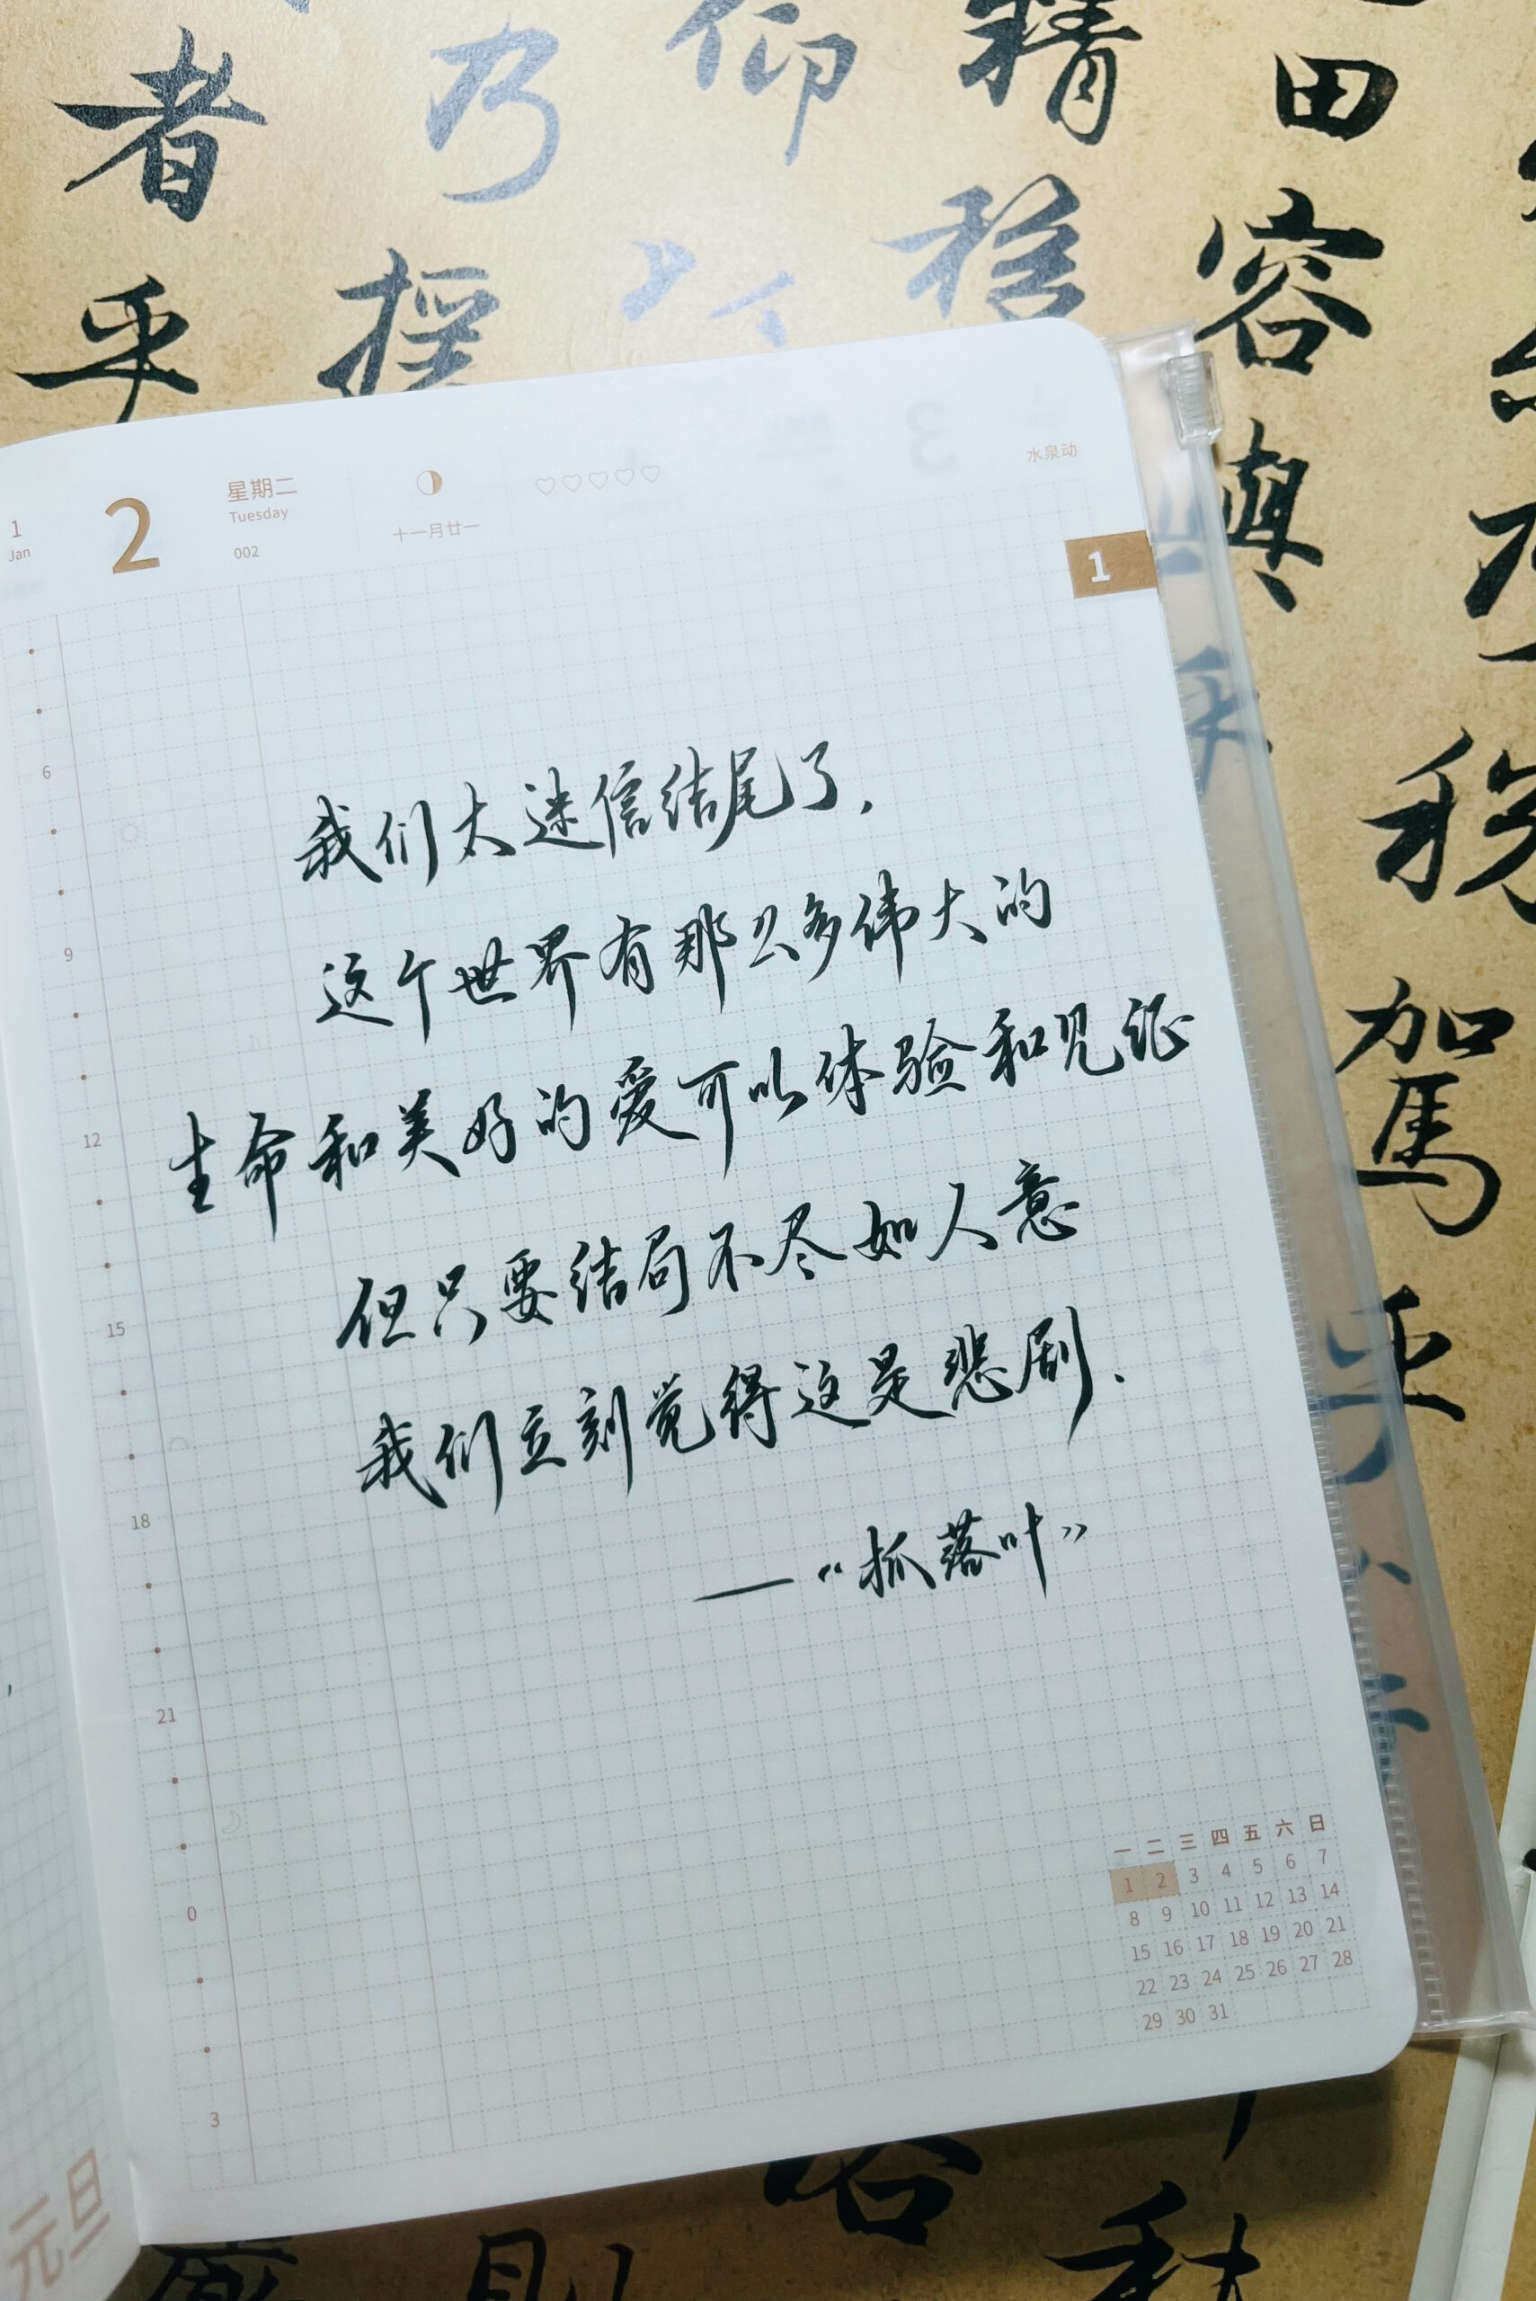 者
乃
仰
精
田
乎
容
稅
駕
乎
1
Jan
2
星期二
Tuesday
002
十一月廿一
水泉动
1
6
9
12
15
18
21
0
3
我们太迷信结尾了,
这个世界有那么多伟大的
生命和美好的爱可以体验和见证
但只要结局不尽如人意
我们立刻觉得这是悲剧.
——“抓落叶”
一 二 三 四 五 六 日
1 2 3 4 5 6 7
8 9 10 11 12 13 14
15 16 17 18 19 20 21
22 23 24 25 26 27 28
29 30 31
元旦